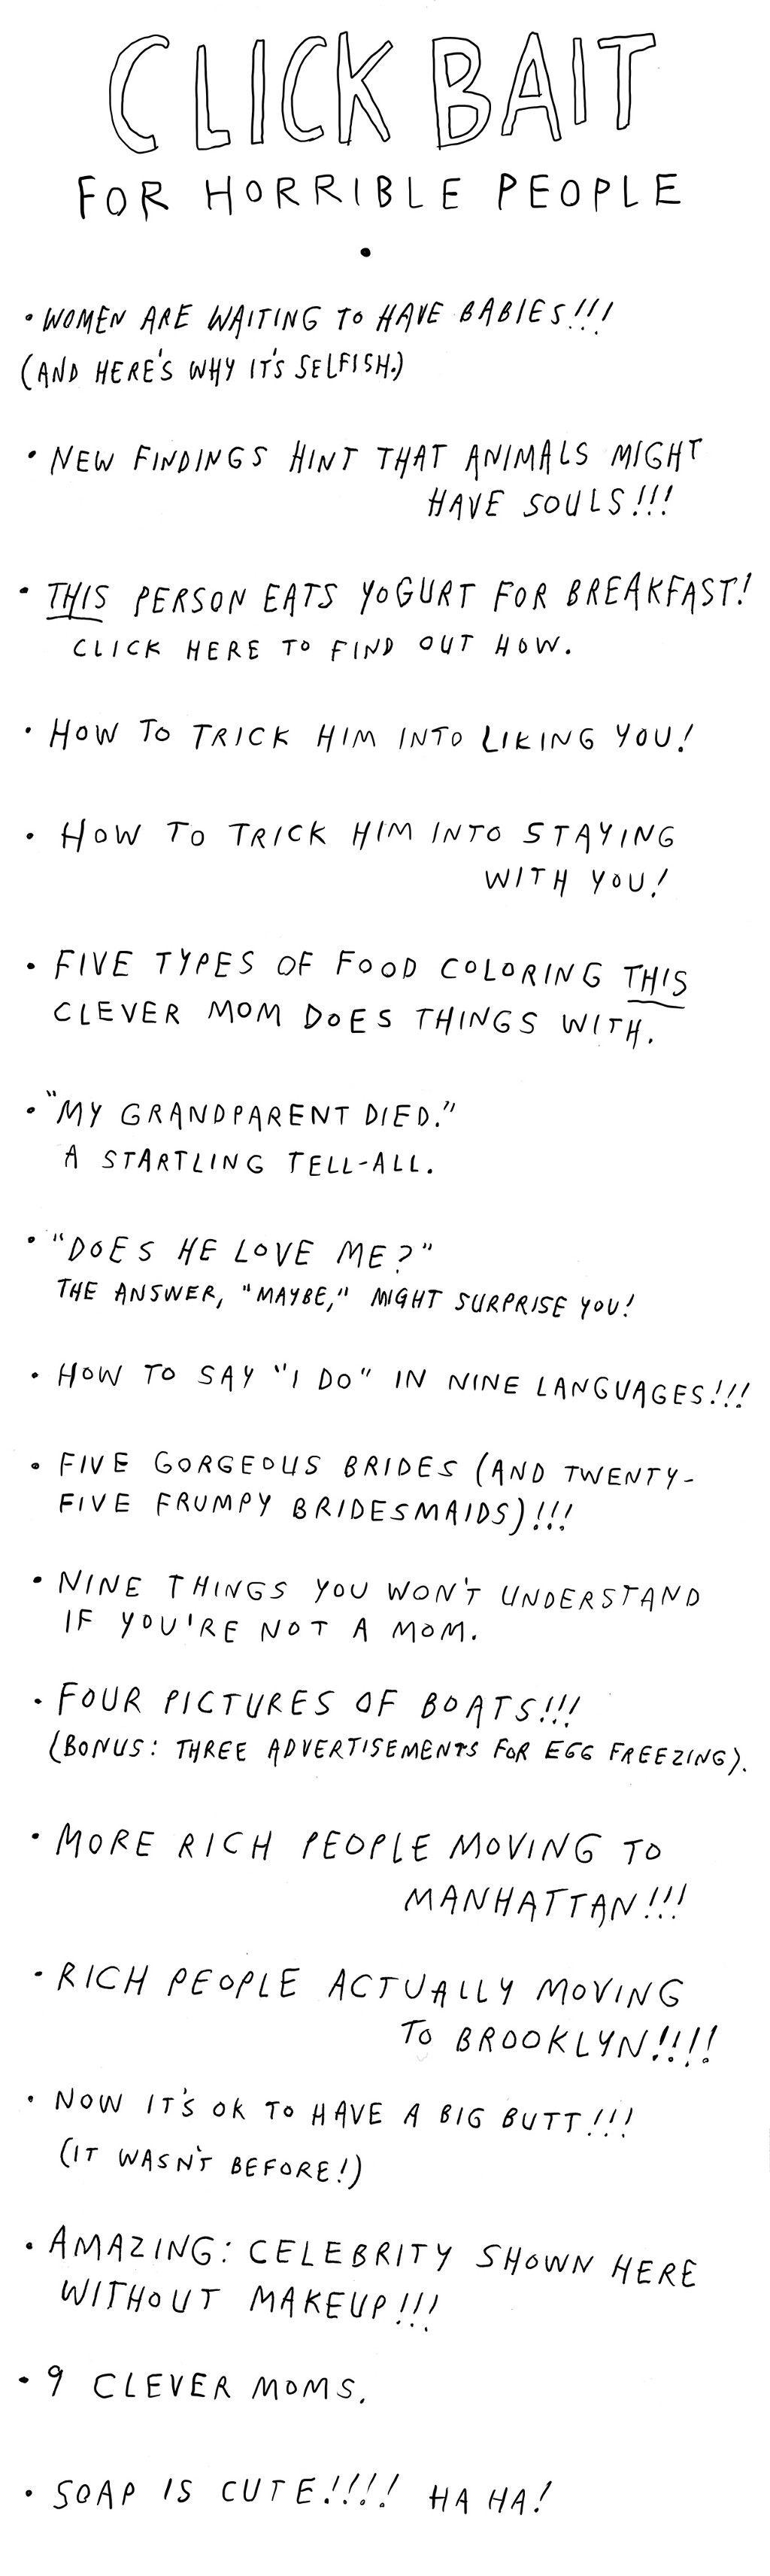 CLICK BAIT
FOR HORRIBLE PEOPLE
•
• WOMEN ARE WAITING TO HAVE BABIES!!!
(AND HERE'S WHY IT'S SELFISH.)
• NEW FINDINGS HINT THAT ANIMALS MIGHT
HAVE SOULS!!!
• THIS PERSON EATS YOGURT FOR BREAKFAST!
CLICK HERE TO FIND OUT HOW.
• HOW TO TRICK HIM INTO LIKING YOU!
• HOW TO TRICK HIM INTO STAYING
WITH YOU!
• FIVE TYPES OF FOOD COLORING THIS
CLEVER MOM DOES THINGS WITH.
• "MY GRANDPARENT DIED."
A STARTLING TELL-ALL.
• "DOES HE LOVE ME?"
THE ANSWER, "MAYBE," MIGHT SURPRISE YOU!
• HOW TO SAY "I DO" IN NINE LANGUAGES!!!
• FIVE GORGEOUS BRIDES (AND TWENTY-
FIVE FRUMPY BRIDESMAIDS)!!!
• NINE THINGS YOU WON'T UNDERSTAND
IF YOU'RE NOT A MOM.
• FOUR PICTURES OF BOATS!!!
(BONUS: THREE ADVERTISEMENTS FOR EGG FREEZING).
• MORE RICH PEOPLE MOVING TO
MANHATTAN!!!
• RICH PEOPLE ACTUALLY MOVING
TO BROOKLYN!!!!
• NOW IT'S OK TO HAVE A BIG BUTT!!!
(IT WASN'T BEFORE!)
• AMAZING: CELEBRITY SHOWN HERE
WITHOUT MAKEUP!!!
• 9 CLEVER MOMS.
• SOAP IS CUTE!!!! HA HA!